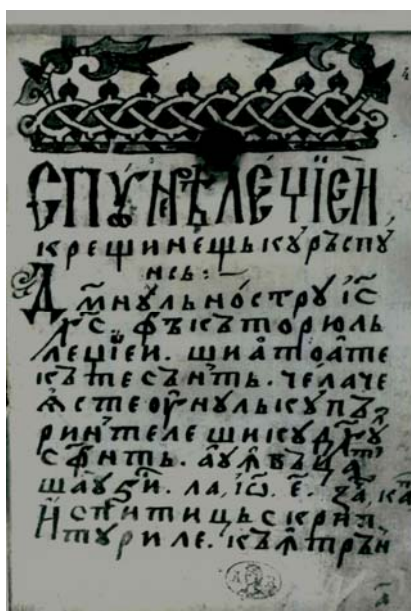 СПꙋ́НѢ ЛЕ́ЏЇЕЙ
крещинещькꙋръспꙋ
нсь:
Дм҃нꙋльно́стрꙋ і҃с
х҃с. фъкъторюль
леџїеи. шиа҆тоа҆те
кътесънть. че́лаче
ѧ҆стеѻ҆ꙋнꙋлькꙋпъ
ри́нтелешикꙋдх҃ꙋ
сф҃нть. аꙋꙟвъцат
шаꙋѕи. ла, іѡ҃. є҃. за҃, ка
испитицьскрип
тꙋриле. къꙟтрꙟн